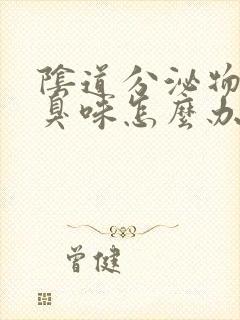 陰道分泌物
臭味怎麼办
曾健